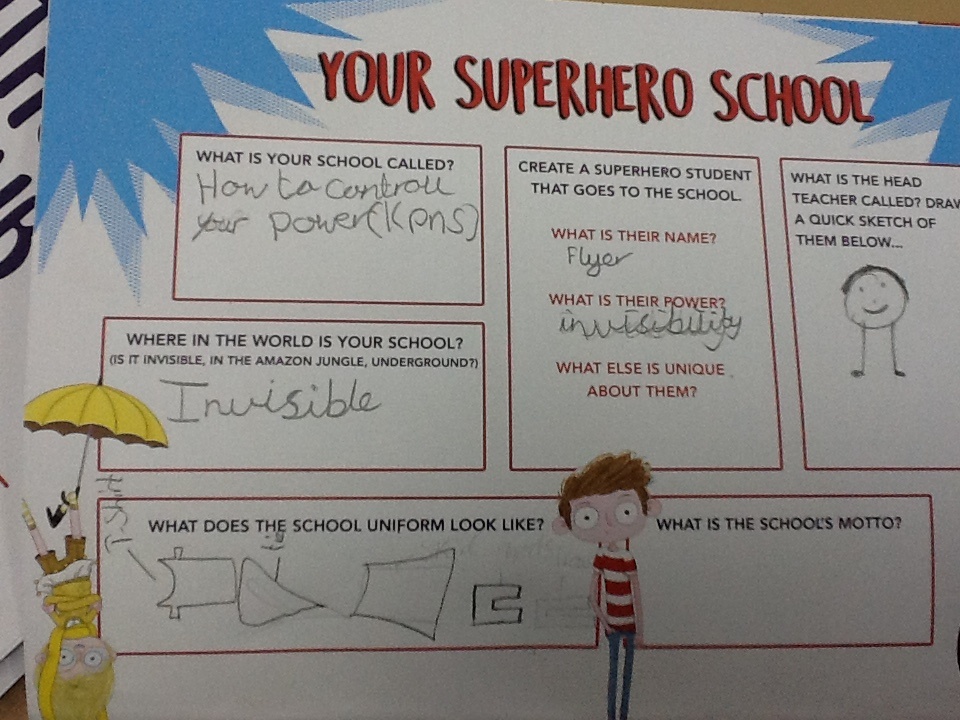 YOUR SUPERHERO SCHOOL
WHAT IS YOUR SCHOOL CALLED?
How to controll
your power(Kpns)
CREATE A SUPERHERO STUDENT
THAT GOES TO THE SCHOOL.
WHAT IS THEIR NAME?
Flyer
WHAT IS THEIR POWER?
invisibility
WHAT ELSE IS UNIQUE
ABOUT THEM?
WHAT IS THE HEAD
TEACHER CALLED? DRAW
A QUICK SKETCH OF
THEM BELOW...
WHERE IN THE WORLD IS YOUR SCHOOL?
(IS IT INVISIBLE, IN THE AMAZON JUNGLE, UNDERGROUND?)
Invisible
WHAT DOES THE SCHOOL UNIFORM LOOK LIKE?
WHAT IS THE SCHOOL'S MOTTO?